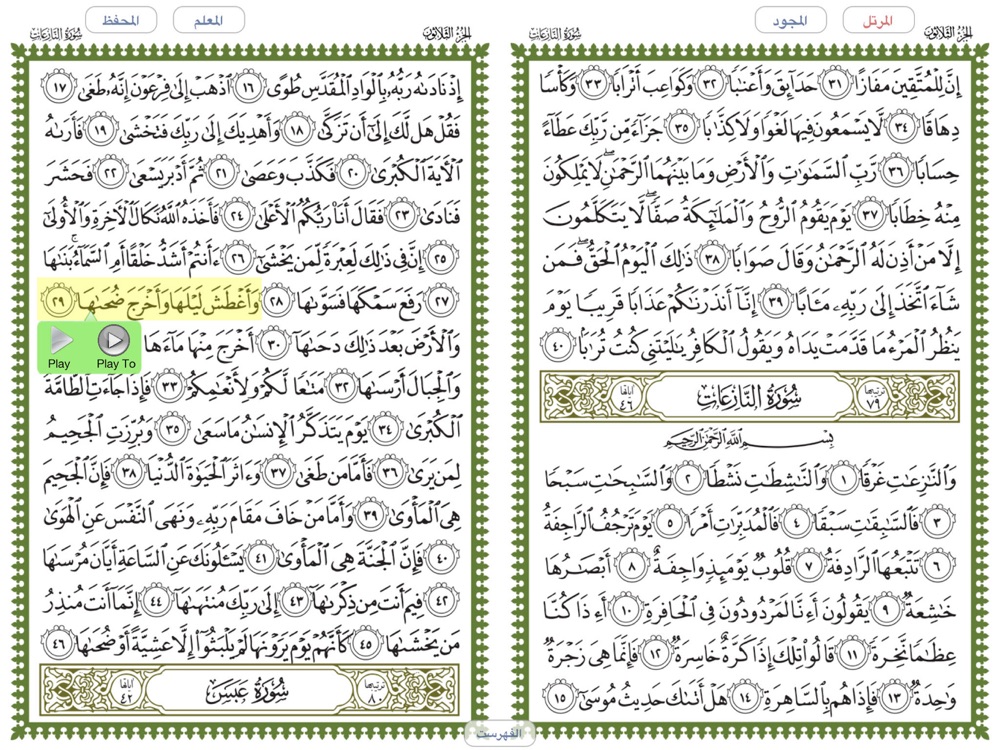 المحفظ
المعلم
المجود
المرتل
الجزء الثلاثون
سورة النازعات
إِنَّ لِلْمُتَّقِينَ مَفَازًا ٣١ حَدَآئِقَ وَأَعْنَٰبًا ٣٢ وَكَوَاعِبَ أَتْرَابًا ٣٣ وَكَأْسًا
دِهَاقًا ٣٤ لَّا يَسْمَعُونَ فِيهَا لَغْوًا وَلَا كِذَّٰبًا ٣٥ جَزَآءً مِّن رَّبِّكَ عَطَآءً
حِسَابًا ٣٦ رَّبِّ ٱلسَّمَٰوَٰتِ وَٱلْأَرْضِ وَمَا بَيْنَهُمَا ٱلرَّحْمَٰنِ ۖ لَا يَمْلِكُونَ
مِنْهُ خِطَابًا ٣٧ يَوْمَ يَقُومُ ٱلرُّوحُ وَٱلْمَلَٰٓئِكَةُ صَفًّا ۖ لَّا يَتَكَلَّمُونَ
إِلَّا مَنْ أَذِنَ لَهُ ٱلرَّحْمَٰنُ وَقَالَ صَوَابًا ٣٨ ذَٰلِكَ ٱلْيَوْمُ ٱلْحَقُّ ۖ فَمَن
شَآءَ ٱتَّخَذَ إِلَىٰ رَبِّهِۦ مَـَٔابًا ٣٩ إِنَّآ أَنذَرْنَٰكُمْ عَذَابًا قَرِيبًا يَوْمَ
يَنظُرُ ٱلْمَرْءُ مَا قَدَّمَتْ يَدَاهُ وَيَقُولُ ٱلْكَافِرُ يَٰلَيْتَنِى كُنتُ تُرَٰبًۢا ٤٠
ترتيبها ٧٩ سُورَةُ النَّازِعَاتِ آياتها ٤٦
بِسْمِ ٱللَّهِ ٱلرَّحْمَٰنِ ٱلرَّحِيمِ
وَٱلنَّٰزِعَٰتِ غَرْقًا ١ وَٱلنَّٰشِطَٰتِ نَشْطًا ٢ وَٱلسَّٰبِحَٰتِ سَبْحًا
٣ فَٱلسَّٰبِقَٰتِ سَبْقًا ٤ فَٱلْمُدَبِّرَٰتِ أَمْرًا ٥ يَوْمَ تَرْجُفُ ٱلرَّاجِفَةُ
٦ تَتْبَعُهَا ٱلرَّادِفَةُ ٧ قُلُوبٌ يَوْمَئِذٍ وَاجِفَةٌ ٨ أَبْصَٰرُهَا
خَٰشِعَةٌ ٩ يَقُولُونَ أَءِنَّا لَمَرْدُودُونَ فِى ٱلْحَافِرَةِ ١٠ أَءِذَا كُنَّا
عِظَٰمًا نَّخِرَةً ١١ قَالُوا۟ تِلْكَ إِذًا كَرَّةٌ خَاسِرَةٌ ١٢ فَإِنَّمَا هِىَ زَجْرَةٌ
وَٰحِدَةٌ ١٣ فَإِذَا هُم بِٱلسَّاهِرَةِ ١٤ هَلْ أَتَىٰكَ حَدِيثُ مُوسَىٰٓ ١٥
الجزء الثلاثون
سورة النازعات
إِذْ نَادَىٰهُ رَبُّهُۥ بِٱلْوَادِ ٱلْمُقَدَّسِ طُوًى ١٦ ٱذْهَبْ إِلَىٰ فِرْعَوْنَ إِنَّهُۥ طَغَىٰ ١٧
فَقُلْ هَل لَّكَ إِلَىٰٓ أَن تَزَكَّىٰ ١٨ وَأَهْدِيَكَ إِلَىٰ رَبِّكَ فَتَخْشَىٰ ١٩ فَأَرَىٰهُ
ٱلْـَٔايَةَ ٱلْكُبْرَىٰ ٢٠ فَكَذَّبَ وَعَصَىٰ ٢١ ثُمَّ أَدْبَرَ يَسْعَىٰ ٢٢ فَحَشَرَ
فَنَادَىٰ ٢٣ فَقَالَ أَنَا۠ رَبُّكُمُ ٱلْأَعْلَىٰ ٢٤ فَأَخَذَهُ ٱللَّهُ نَكَالَ ٱلْـَٔاخِرَةِ وَٱلْأُولَىٰٓ
٢٥ إِنَّ فِى ذَٰلِكَ لَعِبْرَةً لِّمَن يَخْشَىٰٓ ٢٦ ءَأَنتُمْ أَشَدُّ خَلْقًا أَمِ ٱلسَّمَآءُ ۚ بَنَىٰهَا
٢٧ رَفَعَ سَمْكَهَا فَسَوَّىٰهَا ٢٨ وَأَغْطَشَ لَيْلَهَا وَأَخْرَجَ ضُحَىٰهَا ٢٩
وَٱلْأَرْضَ بَعْدَ ذَٰلِكَ دَحَىٰهَآ ٣٠ أَخْرَجَ مِنْهَا مَآءَهَا
Play
Play To
وَٱلْجِبَالَ أَرْسَىٰهَا ٣٢ مَتَٰعًا لَّكُمْ وَلِأَنْعَٰمِكُمْ ٣٣ فَإِذَا جَآءَتِ ٱلطَّآمَّةُ
ٱلْكُبْرَىٰ ٣٤ يَوْمَ يَتَذَكَّرُ ٱلْإِنسَٰنُ مَا سَعَىٰ ٣٥ وَبُرِّزَتِ ٱلْجَحِيمُ
لِمَن يَرَىٰ ٣٦ فَأَمَّا مَن طَغَىٰ ٣٧ وَءَاثَرَ ٱلْحَيَوٰةَ ٱلدُّنْيَا ٣٨ فَإِنَّ ٱلْجَحِيمَ
هِىَ ٱلْمَأْوَىٰ ٣٩ وَأَمَّا مَنْ خَافَ مَقَامَ رَبِّهِۦ وَنَهَى ٱلنَّفْسَ عَنِ ٱلْهَوَىٰ
٤٠ فَإِنَّ ٱلْجَنَّةَ هِىَ ٱلْمَأْوَىٰ ٤١ يَسْـَٔلُونَكَ عَنِ ٱلسَّاعَةِ أَيَّانَ مُرْسَىٰهَا
٤٢ فِيمَ أَنتَ مِن ذِكْرَىٰهَآ ٤٣ إِلَىٰ رَبِّكَ مُنتَهَىٰهَآ ٤٤ إِنَّمَآ أَنتَ مُنذِرُ
مَن يَخْشَىٰهَا ٤٥ كَأَنَّهُمْ يَوْمَ يَرَوْنَهَا لَمْ يَلْبَثُوٓا۟ إِلَّا عَشِيَّةً أَوْ ضُحَىٰهَا ٤٦
ترتيبها ٨٠ سُورَةُ عَبَسَ آياتها ٤٢
الفهرست